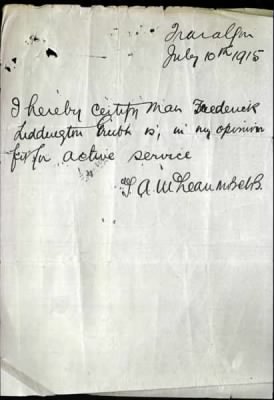 Traralgon
July 10th 1915
I hereby certify Man Frederick
Liddington is, in my opinion
fit for active service
A McLean MB Ch B.